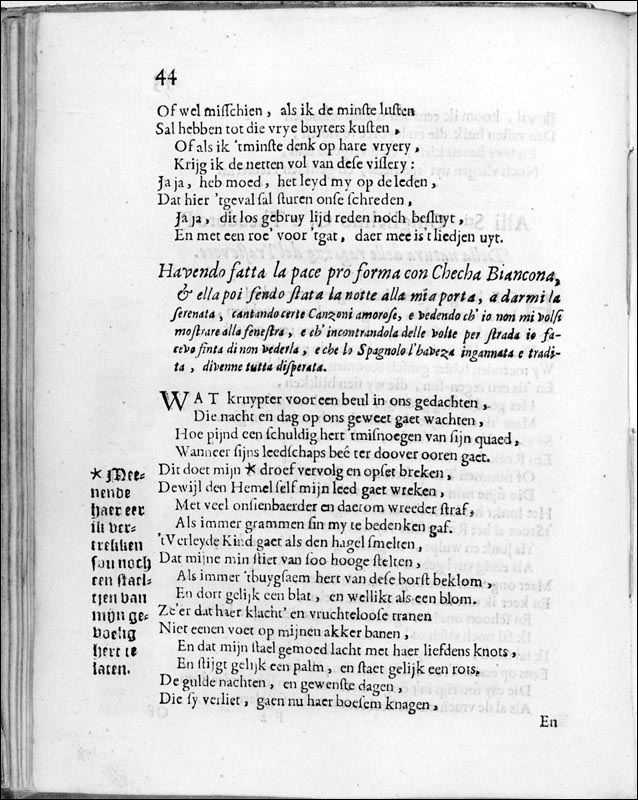 44
Of wel misschien, als ik de minste lusten
Sal hebben tot die vrye buyters kusten,
Of als ik 'tminste denk op hare vryery,
Krijg ik de netten vol van dese vissery:
Ja ja, heb moed, het leyd my op de leden,
Dat hier 'tgeval sal sturen onse schreden,
Ja ja, dit los gebruy lijd reden noch besluyt,
En met een roe' voor 'tgat, daer mee is't liedjen uyt.
Havendo fatta la pace pro forma con Checha Biancona,
& ella poi sendo stata la notte alla mia porta, a darmi la
serenata, cantando certe Canzoni amorose, e vedendo ch' io non mi volsi
mostrare alla fenestra, e ch' incontrandola delle volte per strada io fa-
cevo finta di non vederla, e che lo Spagnolo l'haveza ingannata e tradi-
ta, divenne tutta disperata.
WAT kruypter voor een beul in ons gedachten,
Die nacht en dag op ons geweet gaet wachten,
Hoe pijnd een schuldig hert 'tmisnoegen van sijn quaed,
Wanneer sijns leedschaps beê ter doover ooren gaet.
Dit doet mijn * droef vervolg en opset breken,
Dewijl den Hemel self mijn leed gaet wreken,
Met veel onsienbaerder en daerom wreeder straf,
Als immer grammen sin my te bedenken gaf.
'tVerleyde Kind gaet als den hagel smelten,
Dat mijne min stiet van soo hooge stelten,
Als immer 'tbuygsaem hert van dese borst beklom,
En dort gelijk een blat, en wellikt als een blom.
Ze'er dat haer klacht' en vruchteloose tranen
Niet eenen voet op mijnen akker banen,
En dat mijn stael gemoed lacht met haer liefdens knots,
En stijgt gelijk een palm, en staet gelijk een rots.
De gulde nachten, en gewenste dagen,
Die sy verliet, gaen nu haer boesem knagen,
En
* Mee-
nende
haer eer
ik ver-
trekken
sou noch
een stael-
tjen van
mijn ge-
voelig
hert te
laten.